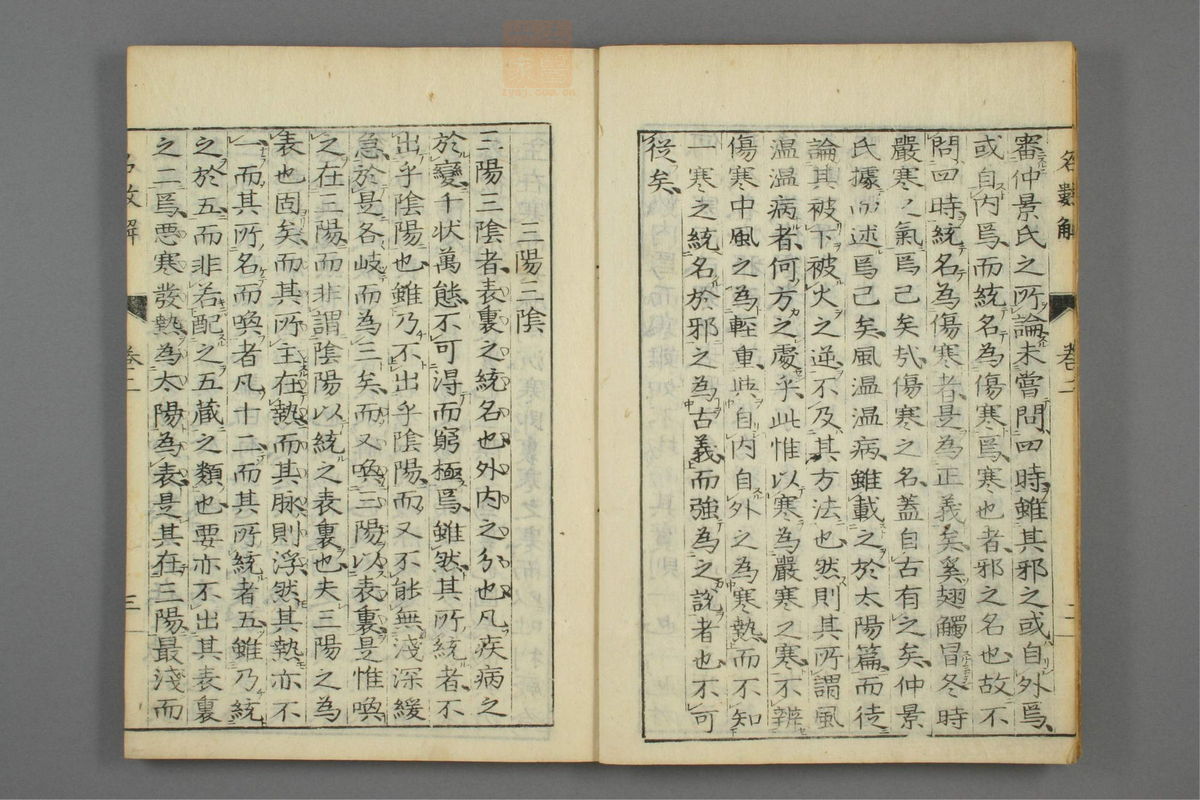 名數解 卷二 二
審仲景氏之所論未嘗問四時雖其邪之或自外焉
或自内焉而統名為傷寒焉寒也者邪之名也故不
問四時統名為傷寒者是為正義矣奚翅觸冒冬時
嚴寒之氣焉已矣哉傷寒之名蓋自古有之矣仲景
氏據而述焉已矣風温温病雖載之於太陽篇而徒
論其被下被火之逆不及其方法也然則其所謂風
温温病者何方之處乎此惟以寒為嚴寒之寒不辨
傷寒中風之為輕重與自内自外之為寒熱而不知
一寒之統名於邪之為古義而強為之說者也不可
從矣
三陽三陰
三陽三陰者表裏之統名也外内之分也凡疾病之
於變千状萬態不可得而窮極焉雖然其所統者不
出乎陰陽也雖乃不出乎陰陽而又不能無淺深緩
急於是各岐而為三矣而又喚三陽以表裏是惟喚
之在三陽而非謂陰陽以統之表裏也夫三陽之為
表也固矣而其所主在熱而其脉則浮然其熱亦不
一而其所名而喚者凡十二而其所統者五雖乃統
之於五而非若配之五蔵之類也要亦不出其表裏
之二焉悪寒發熱為太陽為表是其在三陽最淺而
名數解 卷二 三